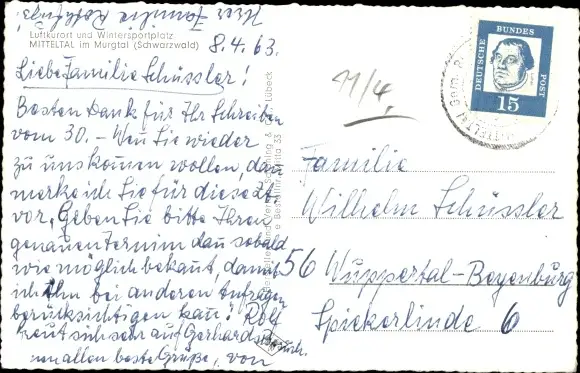 Luftkurort und Wintersportplatz
MITTELTAL im Murgtal (Schwarzwald)
8.4.63.
Liebe Familie Schüssler!
Besten Dank für Ihr Schreiben
vom 30. – Wen Sie wieder
zu uns komen wollen, dan
merke ich Sie für diese Zeit
vor, Geben Sie bitte Ihren
genauen Termin dan sobald
wie möglich bekant, damit
ich ihn bei anderen Anfragen
berücksichtigen kan! Rolf
freut sich sehr auf Gerhards Besuch.
nen allen beste Grüße, von
Ihrer Familie
11/4.
DEUTSCHE BUNDES POST
15
MITTELTAL
Familie
Wilhelm Schüssler
56 Wuppertal-Beyenburg
Spiekerlinde 6
Schöning & Co., Lübeck